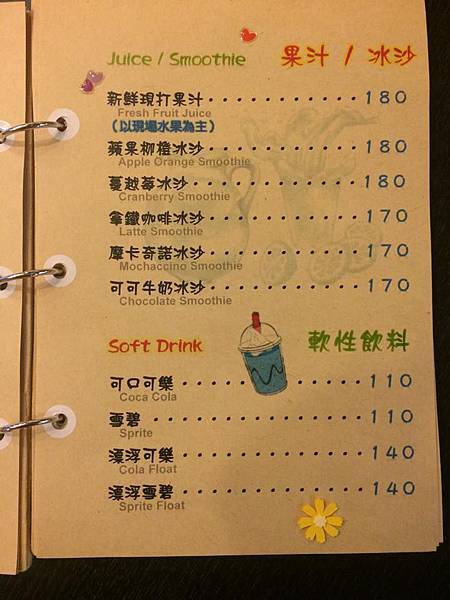 Juice / Smoothie 果汁 / 冰沙
新鮮現打果汁・・・・・・・・・・・180
Fresh Fruit Juice
(以現場水果為主)
蘋果柳橙冰沙・・・・・・・・・・・180
Apple Orange Smoothie
蔓越莓冰沙・・・・・・・・・・・・180
Cranberry Smoothie
拿鐵咖啡冰沙・・・・・・・・・・・170
Latte Smoothie
摩卡奇諾冰沙・・・・・・・・・・・170
Mochaccino Smoothie
可可牛奶冰沙・・・・・・・・・・・170
Chocolate Smoothie
Soft Drink 軟性飲料
可口可樂・・・・・・・・・・・・・110
Coca Cola
雪碧・・・・・・・・・・・・・・・110
Sprite
漂浮可樂・・・・・・・・・・・・・140
Cola Float
漂浮雪碧・・・・・・・・・・・・・140
Sprite Float